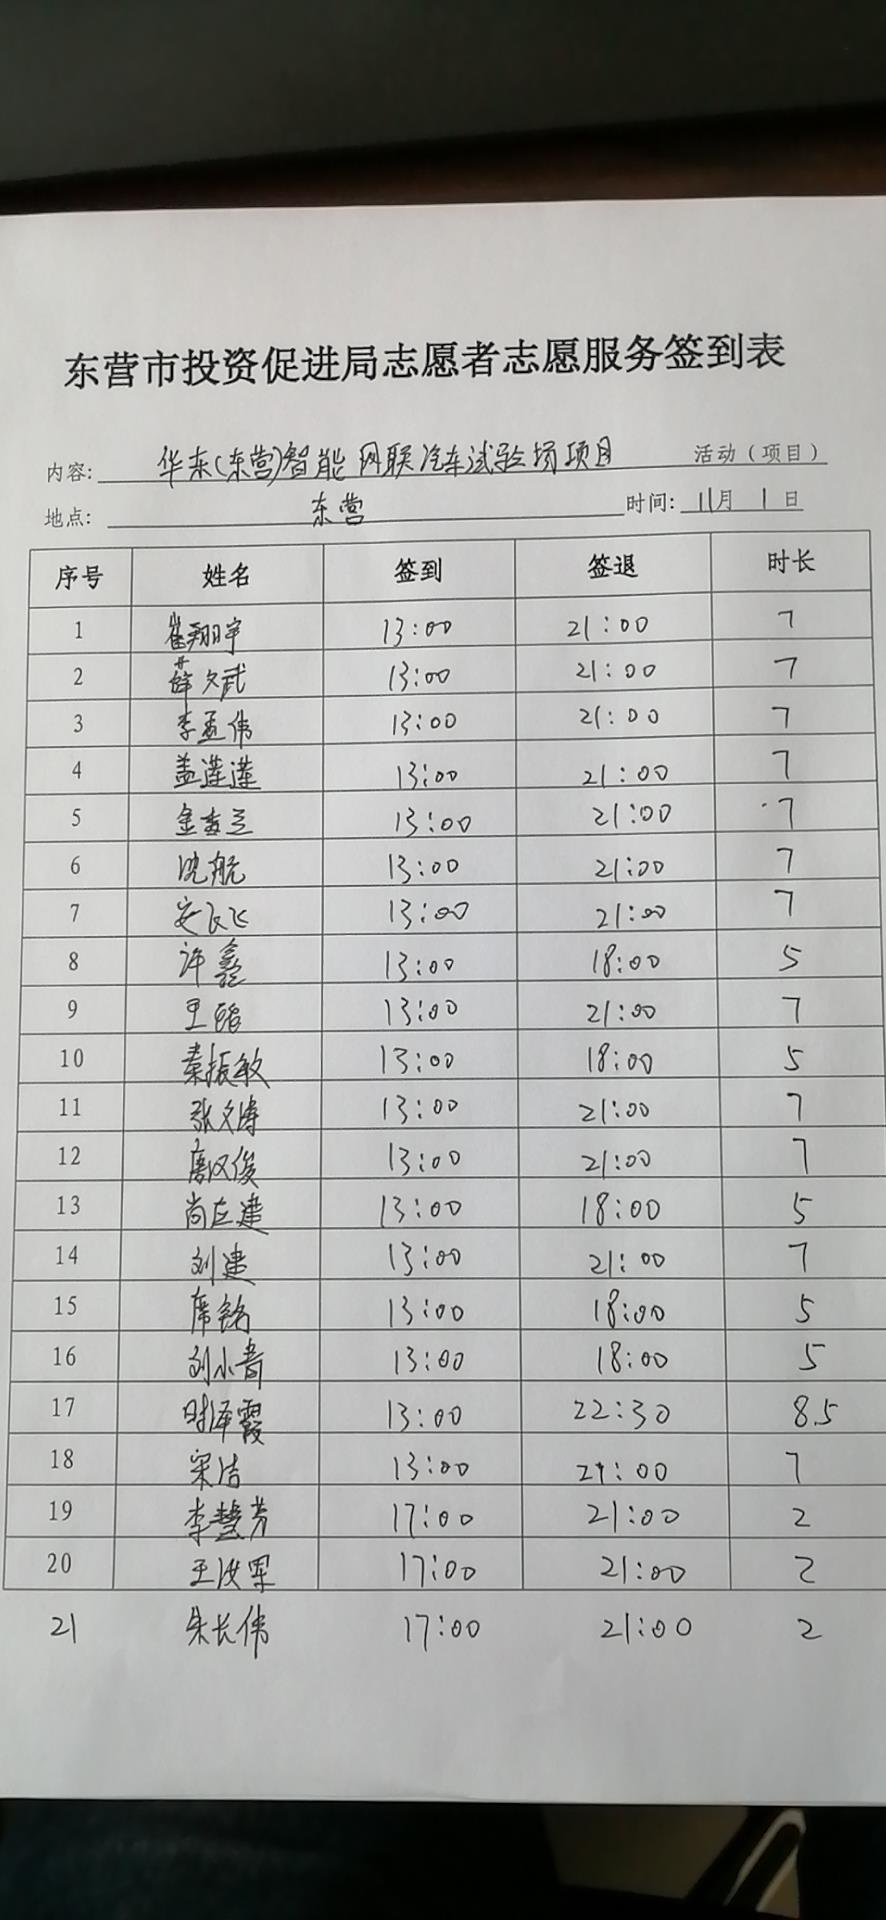 东营市投资促进局志愿者志愿服务签到表
内容: 华东(东营)智能网联汽车试验场项目 活动（项目）
地点: 东营 时间: 11月 1日
序号 姓名 签到 签退 时长
1 崔翔宇 13:00 21:00 7
2 薛文武 13:00 21:00 7
3 李孟伟 13:00 21:00 7
4 盖莲莲 13:00 21:00 7
5 金 13:00 21:00 7
6 沈航 13:00 21:00 7
7 安飞飞 13:00 21:00 7
8 许鑫 13:00 18:00 5
9 王 13:00 21:00 7
10 秦振敏 13:00 18:00 5
11 张文涛 13:00 21:00 7
12 唐汉俊 13:00 21:00 7
13 尚在建 13:00 18:00 5
14 刘建 13:00 21:00 7
15 席铭 13:00 18:00 5
16 刘小 13:00 18:00 5
17 时泽霞 13:00 22:30 8.5
18 宋洁 13:00 21:00 7
19 李慧芳 17:00 21:00 2
20 王汝军 17:00 21:00 2
21 朱长伟 17:00 21:00 2